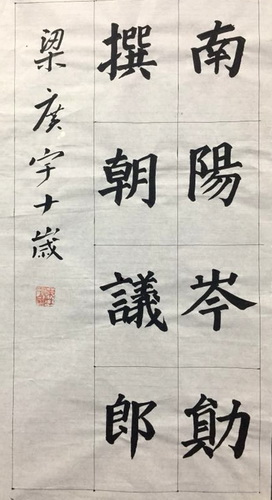 南陽岑勛
撰朝議郎
梁廣宇十歲